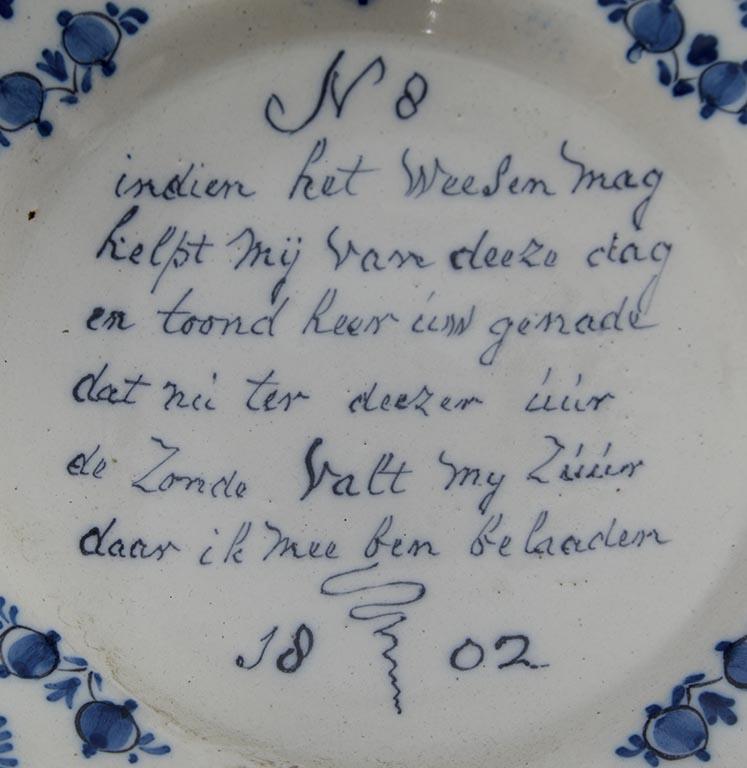 N 8
indien het Weesen mag
helpt mij van deeze dag
en toond heer úw genade
dat nú ter deezer úúr
de Zonde Valt my Zúúr
daar ik mee ben belaaden
18 02